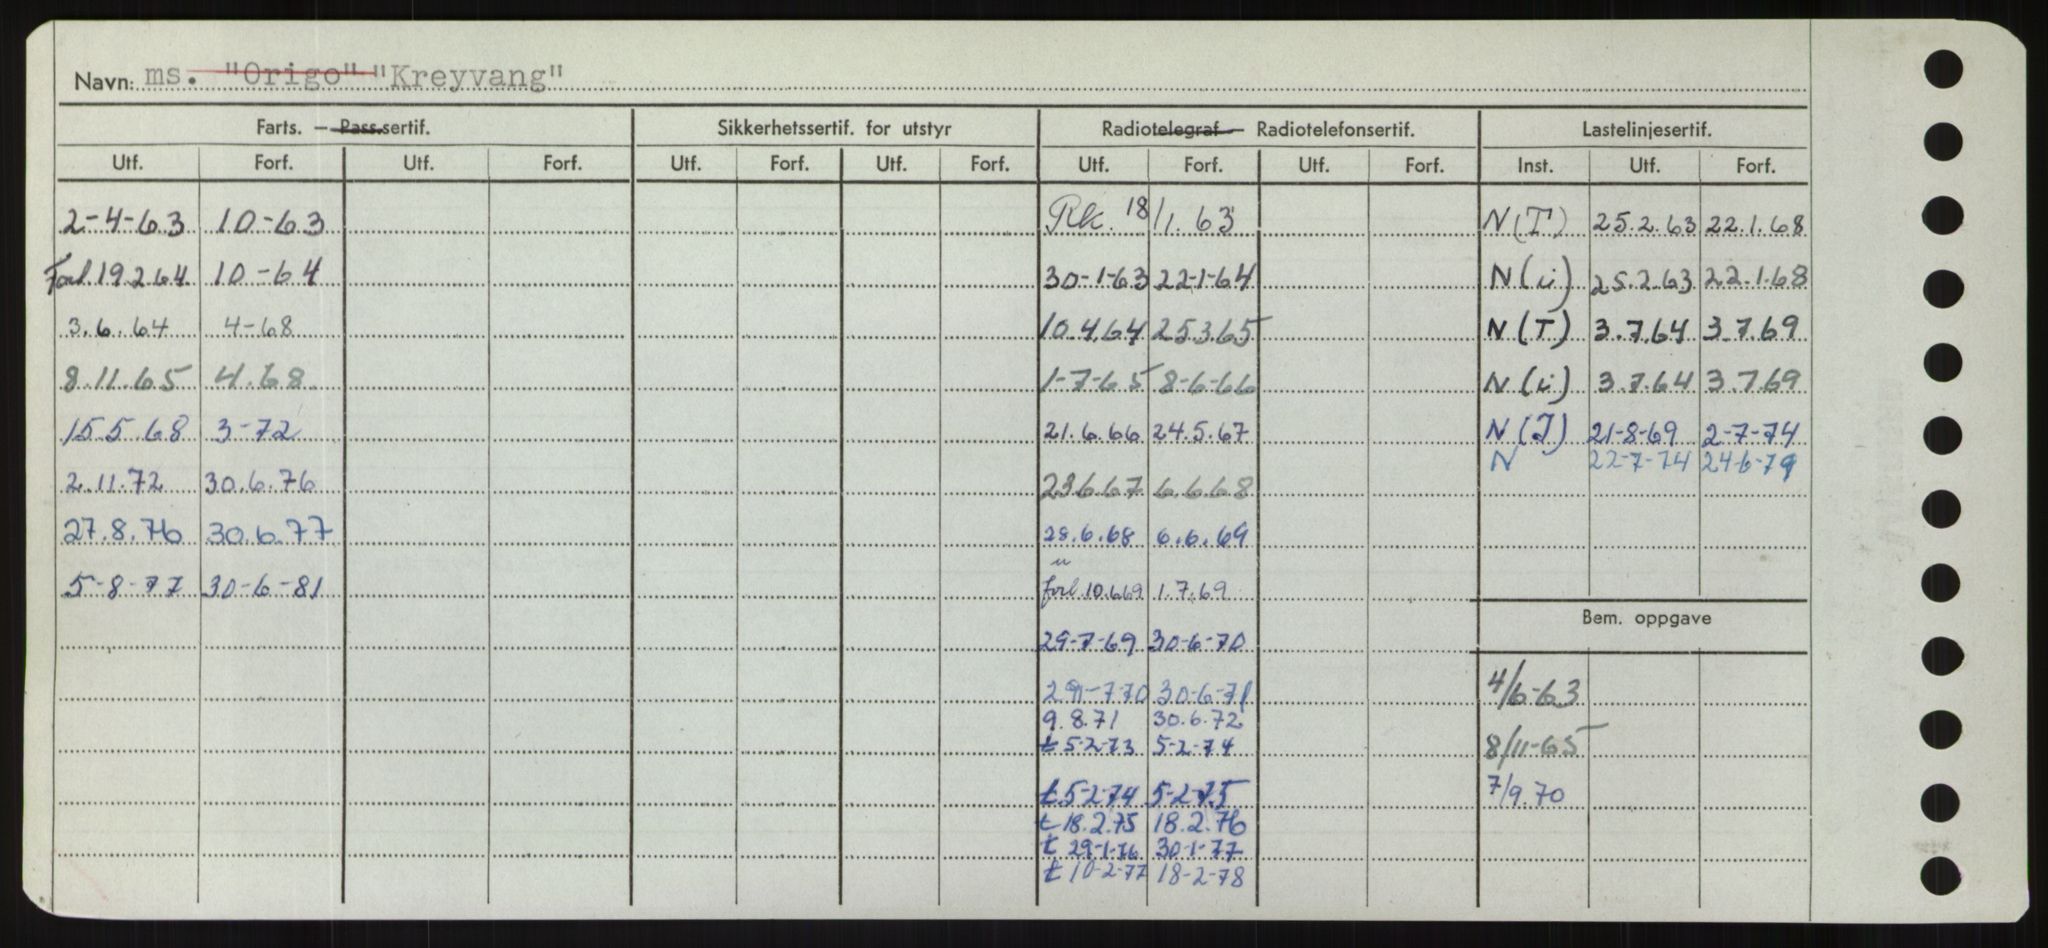 Navn: ms. "Origo" "Kreyvang"
Farts. — Pass.sertif. Sikkerhetssertif. for utstyr Radiotelegraf — Radiotelefonsertif. Lastelinjesertif.
Utf. Forf. Utf. Forf. Utf. Forf. Utf. Forf. Utf. Forf. Utf. Forf. Inst. Utf. Forf.
2-4-63 10-63 Rk. 18/1. 63 N(T) 25.2.63 22.1.68
Forl. 19.2.64 10-64 30-1-63 22-1-64 N(i) 25.2.63 22.1.68
3.6.64 4-68 10.4.64 25.3.65 N(T) 3.7.64 3.7.69
8.11.65 4.68 1-7-65 8-6-66 N(i) 3.7.64 3.7.69
15.5.68 3-72 21.6.66 24.5.67 N(T) 21-8-69 2-7-74
N 22-7-74 24-6-79
2.11.72 30.6.76 23.6.67 6.6.68
27.8.76 30.6.77 28.6.68 6.6.69
5-8-77 30-6-81 forl. 10.6.69 1.7.69
Bem. oppgave
29-7-69 30-6-70
29-7-70 30-6-71 4/6-63
9.8.71 30.6.72
t 5-2-73 5-2-74 8/11-65
t 5-2-74 5-2-75 7/9.70
t 18.2.75 18.2.76
t 29-1-76 30-1-77
t 10-2-77 18-2-78